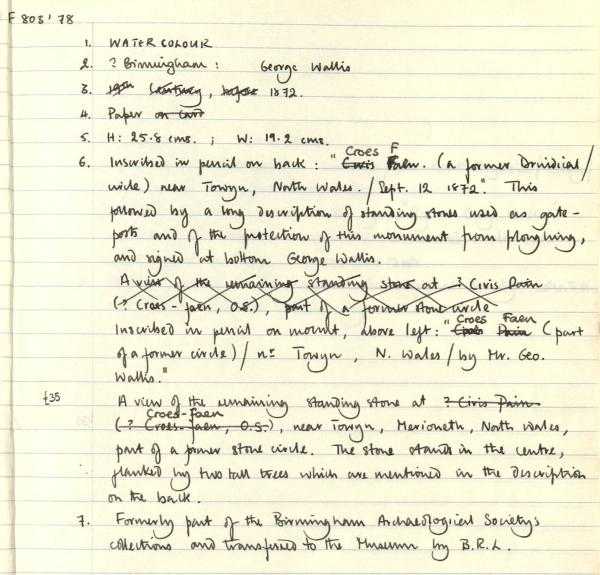 F 803'78
1. WATERCOLOUR
2. ? Birmingham : George Wallis
3. 19th Century, before 1872.
4. Paper on card
5. H: 25.8 cms. ; W: 19.2 cms.
Croes F
6. Inscribed in pencil on back : " Civis Faen. (a former Druidical /
circle) near Towyn, North Wales. / Sept. 12 1872". This
followed by a long description of standing stones used as gate-
posts and of the protection of this monument from ploughing,
and signed at bottom George Wallis.
A view of the remaining standing stone at ? Civis Pain
(? Croes-faen, O.S.), part of a former stone circle
Croes Faen
Inscribed in pencil on mount, above left : " Pain (part
of a former circle) / nr Towyn, N. Wales / by Mr. Geo.
Wallis."
£35 A view of the remaining standing stone at ? Civis Pain
Croes-Faen
(? Croes-faen, O.S.), near Towyn, Merioneth, North Wales,
part of a former stone circle. The stone stands in the centre,
flanked by two tall trees which are mentioned in the description
on the back.
7. Formerly part of the Birmingham Archaeological Society's
collections and transferred to the Museum by B.R.L.